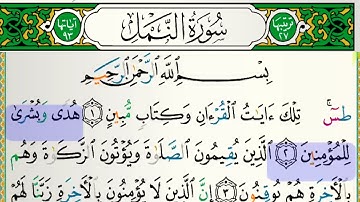 ترتيبها ٢٧ سُورَةُ النَّمْلِ آياتها ٩٣
بِسْمِ ٱللَّهِ ٱلرَّحْمَٰنِ ٱلرَّحِيمِ
طسٓ ۚ تِلْكَ ءَايَٰتُ ٱلْقُرْءَانِ وَكِتَابٍ مُّبِينٍ ١ هُدًى وَبُشْرَىٰ
لِلْمُؤْمِنِينَ ٢ ٱلَّذِينَ يُقِيمُونَ ٱلصَّلَوٰةَ وَيُؤْتُونَ ٱلزَّكَوٰةَ وَهُم
بِٱلْءَاخِرَةِ هُمْ يُوقِنُونَ ٣ إِنَّ ٱلَّذِينَ لَا يُؤْمِنُونَ بِٱلْءَاخِرَةِ زَيَّنَّا لَهُمْ